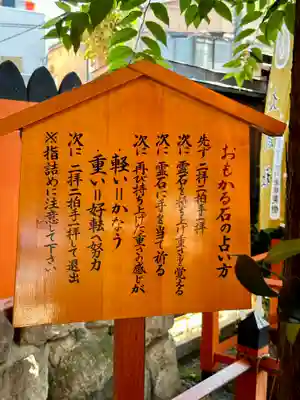 おもかる石の占い方
先ず 二拝二拍手一拝
次に 霊石を持ち上げ重さを覚える
次に 霊石に手を当て祈る
次に 再び持ち上げた重さの感じが
軽い＝かなう
重い＝好転へ努力
次に 二拝二拍手一拝して退出
※指詰めに注意して下さい